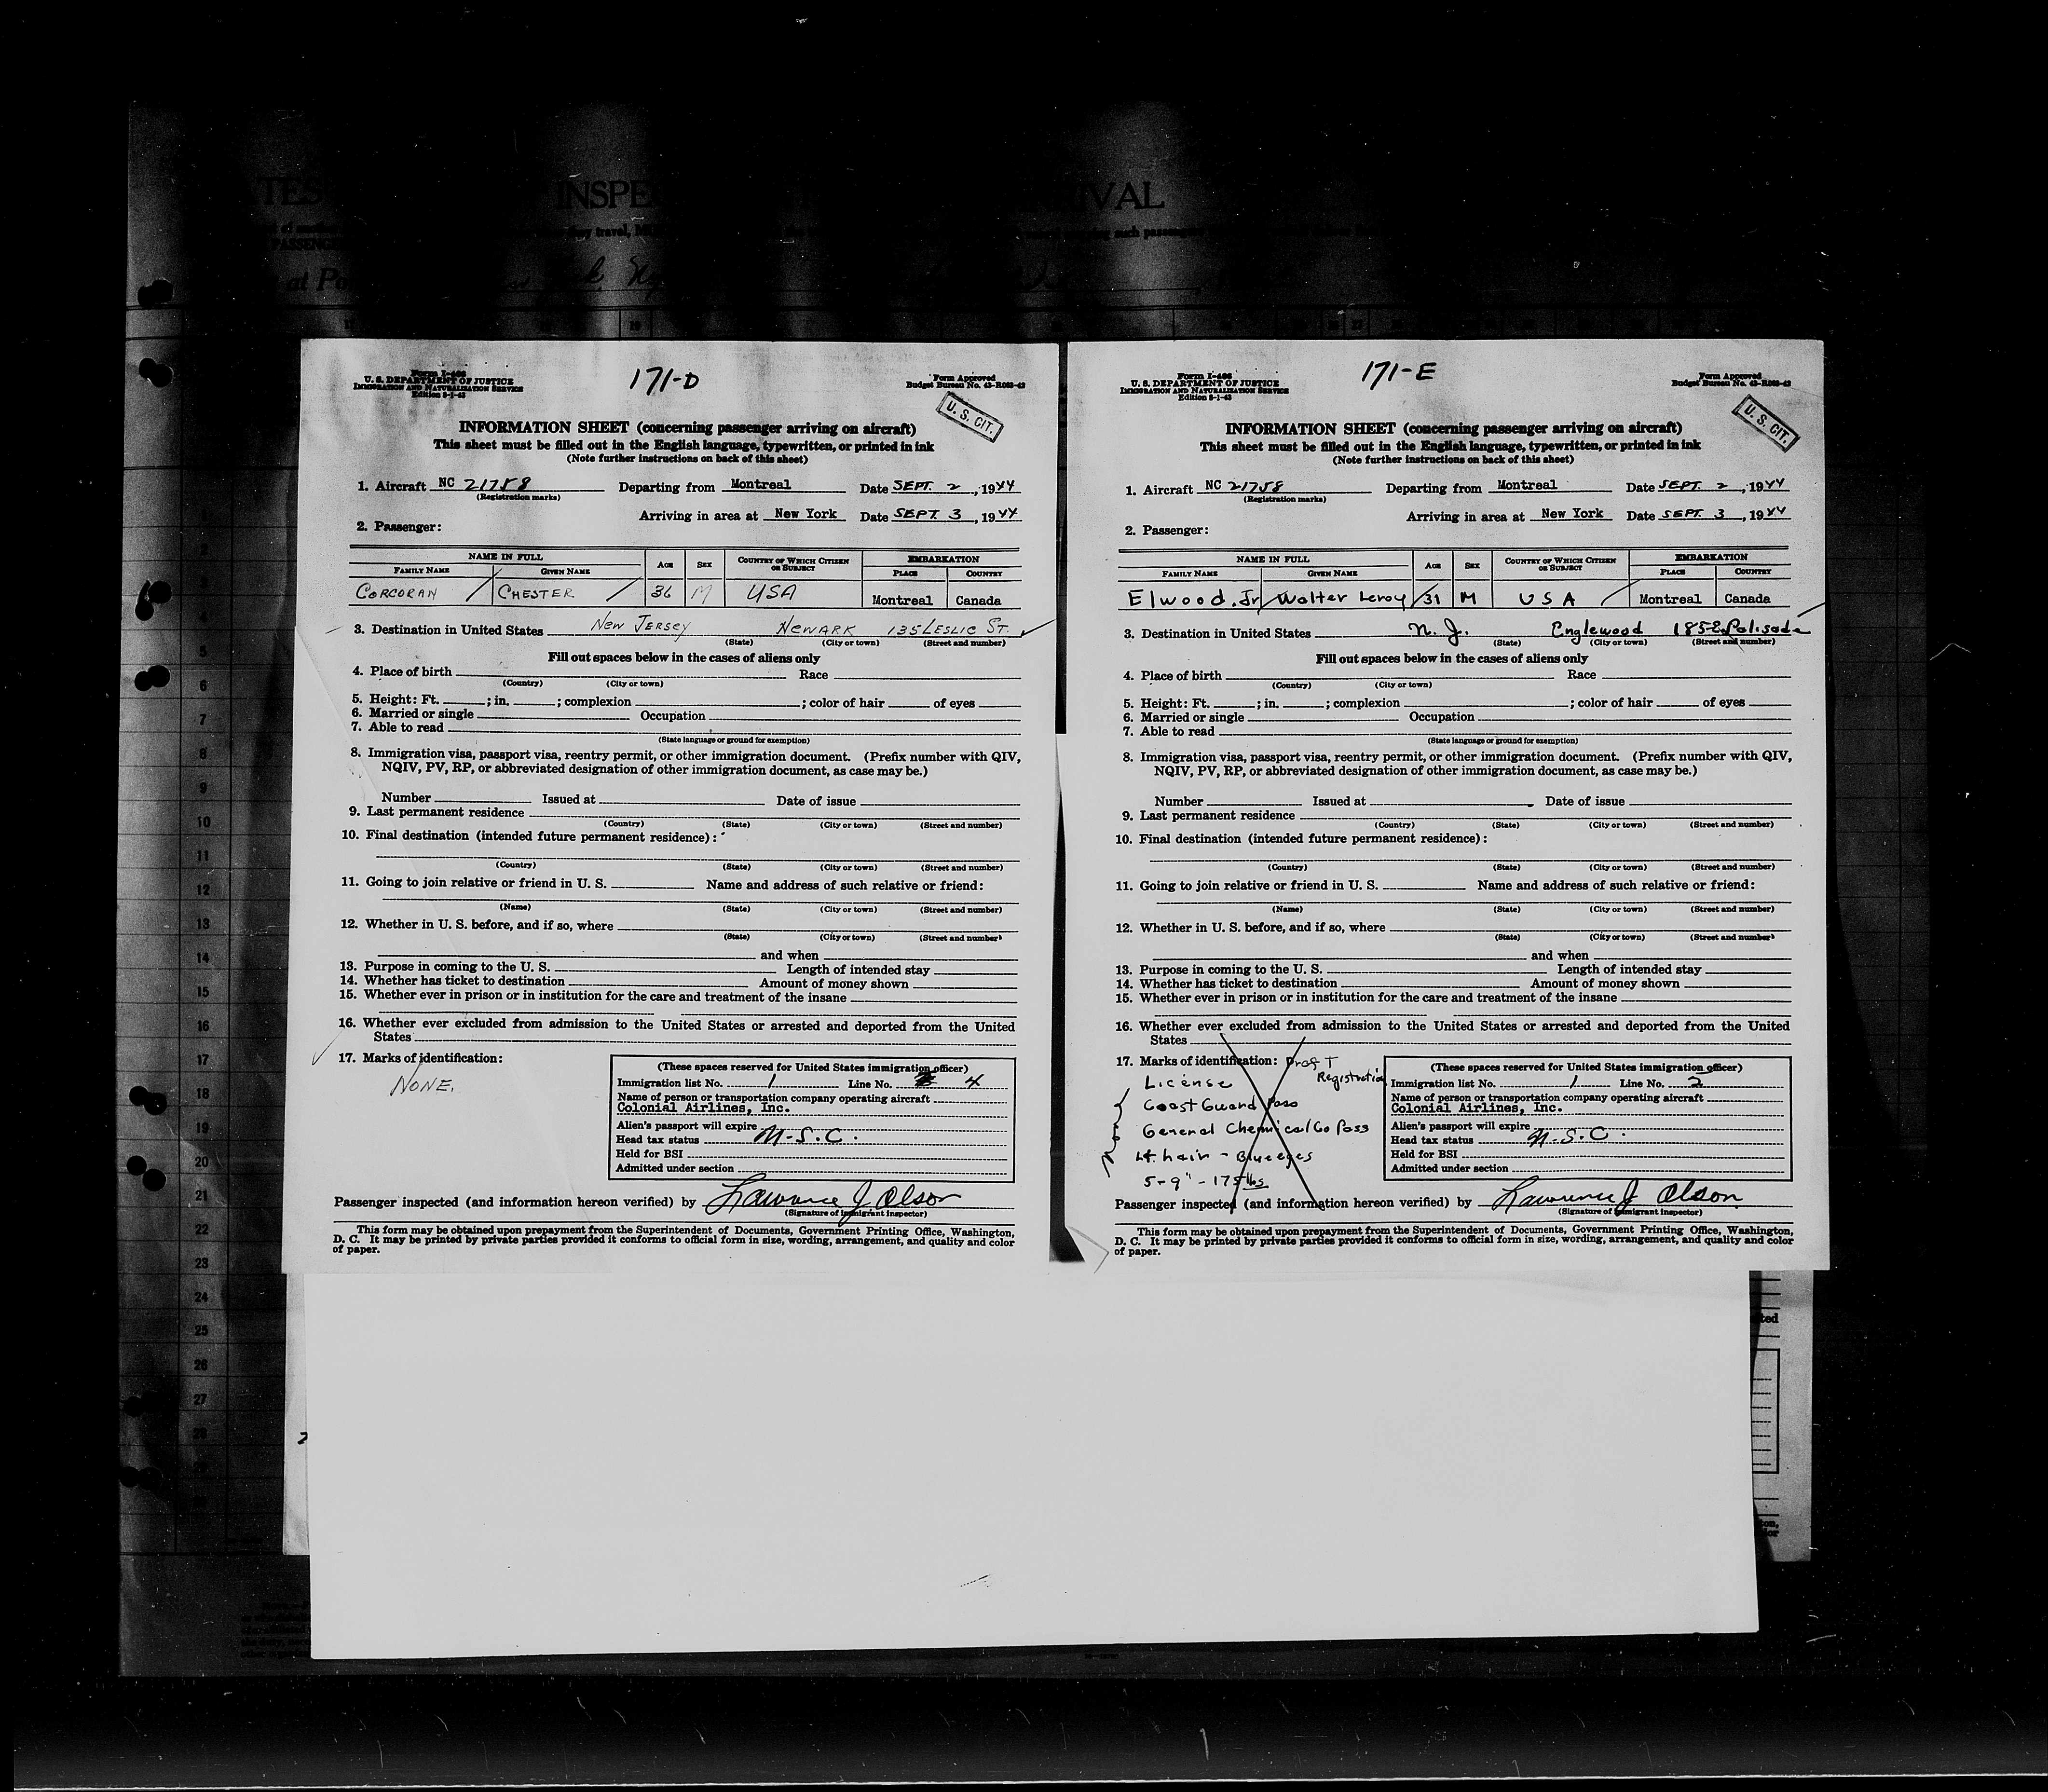 TES INSPE RIVAL
171-D
Form I-466
U. S. DEPARTMENT OF JUSTICE
IMMIGRATION AND NATURALIZATION SERVICE
Edition 8-1-43
Form Approved
Budget Bureau No. 43-R083-42
U. S. CIT.
INFORMATION SHEET (concerning passenger arriving on aircraft)
This sheet must be filled out in the English language, typewritten, or printed in ink
(Note further instructions on back of this sheet)
1. Aircraft NC 21758 Departing from Montreal Date SEPT. 2, 1944
(Registration marks)
Arriving in area at New York Date SEPT. 3, 1944
2. Passenger:
NAME IN FULL AGE SEX COUNTRY OF WHICH CITIZEN OR SUBJECT EMBARKATION
FAMILY NAME GIVEN NAME PLACE COUNTRY
CORCORAN CHESTER 36 M USA Montreal Canada
3. Destination in United States NEW JERSEY NEWARK 135 LESLIE ST.
(State) (City or town) (Street and number)
Fill out spaces below in the cases of aliens only
4. Place of birth Race
(Country) (City or town)
5. Height: Ft. ; in. ; complexion ; color of hair of eyes
6. Married or single Occupation
7. Able to read
(State language or ground for exemption)
8. Immigration visa, passport visa, reentry permit, or other immigration document. (Prefix number with QIV,
NQIV, PV, RP, or abbreviated designation of other immigration document, as case may be.)
Number Issued at Date of issue
9. Last permanent residence
(Country) (State) (City or town) (Street and number)
10. Final destination (intended future permanent residence):
(Country) (State) (City or town) (Street and number)
11. Going to join relative or friend in U. S. Name and address of such relative or friend:
(Name) (State) (City or town) (Street and number)
12. Whether in U. S. before, and if so, where
(State) (City or town) (Street and number)
and when
13. Purpose in coming to the U. S. Length of intended stay
14. Whether has ticket to destination Amount of money shown
15. Whether ever in prison or in institution for the care and treatment of the insane
16. Whether ever excluded from admission to the United States or arrested and deported from the United
States
17. Marks of identification:
NONE.
(These spaces reserved for United States immigration officer)
Immigration list No. 1 Line No. 4
Name of person or transportation company operating aircraft
Colonial Airlines, Inc.
Alien's passport will expire
Head tax status N.S.C.
Held for BSI
Admitted under section
Passenger inspected (and information hereon verified) by Lawrence J. Olson
(Signature of immigrant inspector)
This form may be obtained upon prepayment from the Superintendent of Documents, Government Printing Office, Washington,
D. C. It may be printed by private parties provided it conforms to official form in size, wording, arrangement, and quality and color
of paper.
171-E
Form I-466
U. S. DEPARTMENT OF JUSTICE
IMMIGRATION AND NATURALIZATION SERVICE
Edition 8-1-43
Form Approved
Budget Bureau No. 43-R083-42
U. S. CIT.
INFORMATION SHEET (concerning passenger arriving on aircraft)
This sheet must be filled out in the English language, typewritten, or printed in ink
(Note further instructions on back of this sheet)
1. Aircraft NC 21758 Departing from Montreal Date SEPT. 2, 1944
(Registration marks)
Arriving in area at New York Date SEPT. 3, 1944
2. Passenger:
NAME IN FULL AGE SEX COUNTRY OF WHICH CITIZEN OR SUBJECT EMBARKATION
FAMILY NAME GIVEN NAME PLACE COUNTRY
Elwood, Jr Walter Leroy 31 M USA Montreal Canada
3. Destination in United States N. J. Englewood 185 E. Palisade
(State) (City or town) (Street and number)
Fill out spaces below in the cases of aliens only
4. Place of birth Race
(Country) (City or town)
5. Height: Ft. ; in. ; complexion ; color of hair of eyes
6. Married or single Occupation
7. Able to read
(State language or ground for exemption)
8. Immigration visa, passport visa, reentry permit, or other immigration document. (Prefix number with QIV,
NQIV, PV, RP, or abbreviated designation of other immigration document, as case may be.)
Number Issued at Date of issue
9. Last permanent residence
(Country) (State) (City or town) (Street and number)
10. Final destination (intended future permanent residence):
(Country) (State) (City or town) (Street and number)
11. Going to join relative or friend in U. S. Name and address of such relative or friend:
(Name) (State) (City or town) (Street and number)
12. Whether in U. S. before, and if so, where
(State) (City or town) (Street and number)
and when
13. Purpose in coming to the U. S. Length of intended stay
14. Whether has ticket to destination Amount of money shown
15. Whether ever in prison or in institution for the care and treatment of the insane
16. Whether ever excluded from admission to the United States or arrested and deported from the United
States
17. Marks of identification: Draft
Registration
License
Coast Guard Pass
General Chemical Co Pass
Lt. hair - Blue eyes
5-9" - 175 lbs
None
(These spaces reserved for United States immigration officer)
Immigration list No. 1 Line No. 2
Name of person or transportation company operating aircraft
Colonial Airlines, Inc.
Alien's passport will expire
Head tax status N.S.C.
Held for BSI
Admitted under section
Passenger inspected (and information hereon verified) by Lawrence J. Olson
(Signature of immigrant inspector)
This form may be obtained upon prepayment from the Superintendent of Documents, Government Printing Office, Washington,
D. C. It may be printed by private parties provided it conforms to official form in size, wording, arrangement, and quality and color
of paper.